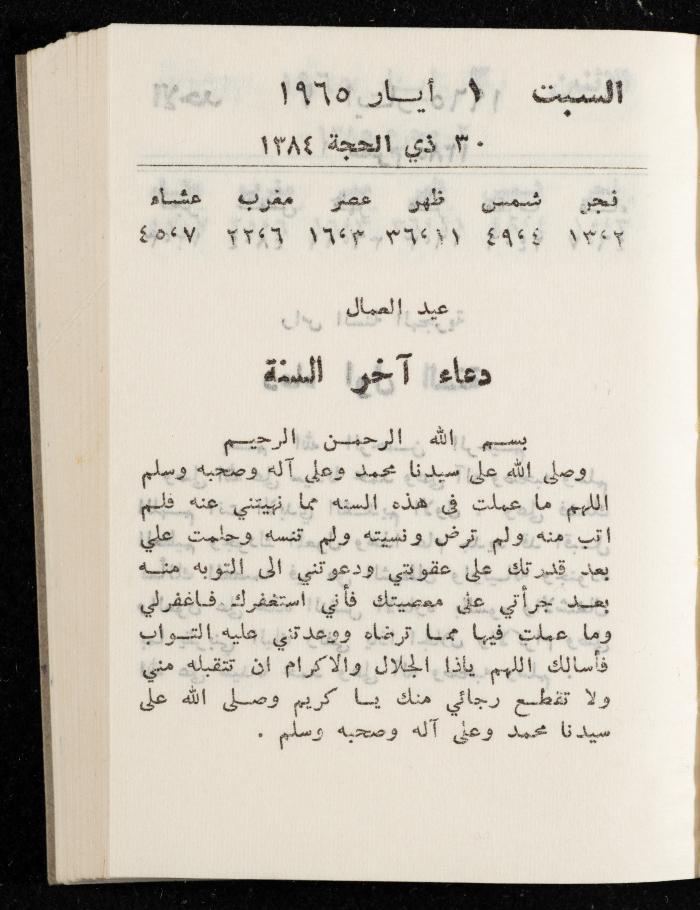 السبت ١ أيـار ١٩٦٥
٣٠ ذي الحجة ١٣٨٤
فجر شمس ظهر عصر مغرب عشاء
١٣،٢ ٤٩،٤ ٣٦،١١ ١٦،٣ ٢٢،٦ ٤٥،٧
عيد العمال
دعاء آخر السنة
بسـم الله الرحمـن الرحيـم
وصلى الله على سيدنا محمد وعلى آله وصحبه وسلم
اللهم ما عملت في هذه السنه مما نهيتني عنه فلـم
اتب منه ولم ترض ونسيته ولم تنسه وحلمت علي
بعد قدرتك على عقوبتي ودعوتني الى التوبه منـه
بعـد جرأتي على معصيتك فأني استغفرك فـاغفرلي
وما عملت فيها ممـا ترضاه ووعدتني عليه التـواب
فأسالك اللهم ياذا الجلال والاكرام ان تتقبله مني
ولا تقطـع رجائي منك يـا كريم وصـلى الله على
سيدنا محمد وعلى آله وصحبه وسلم .